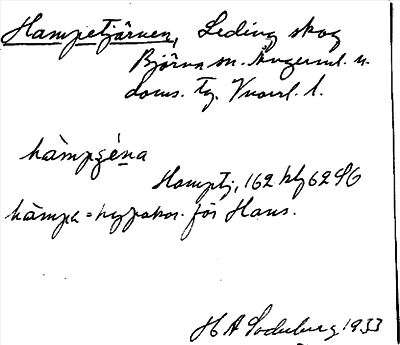 Hampetjärnen, Leding skog
Björna sn. Ångerml. n.
doms. Tg. l.
hàmpșéna
Hamptj, 162 kbf 62 SG
hàmpa = hypokor. för Hans.
H A Söderberg 1933